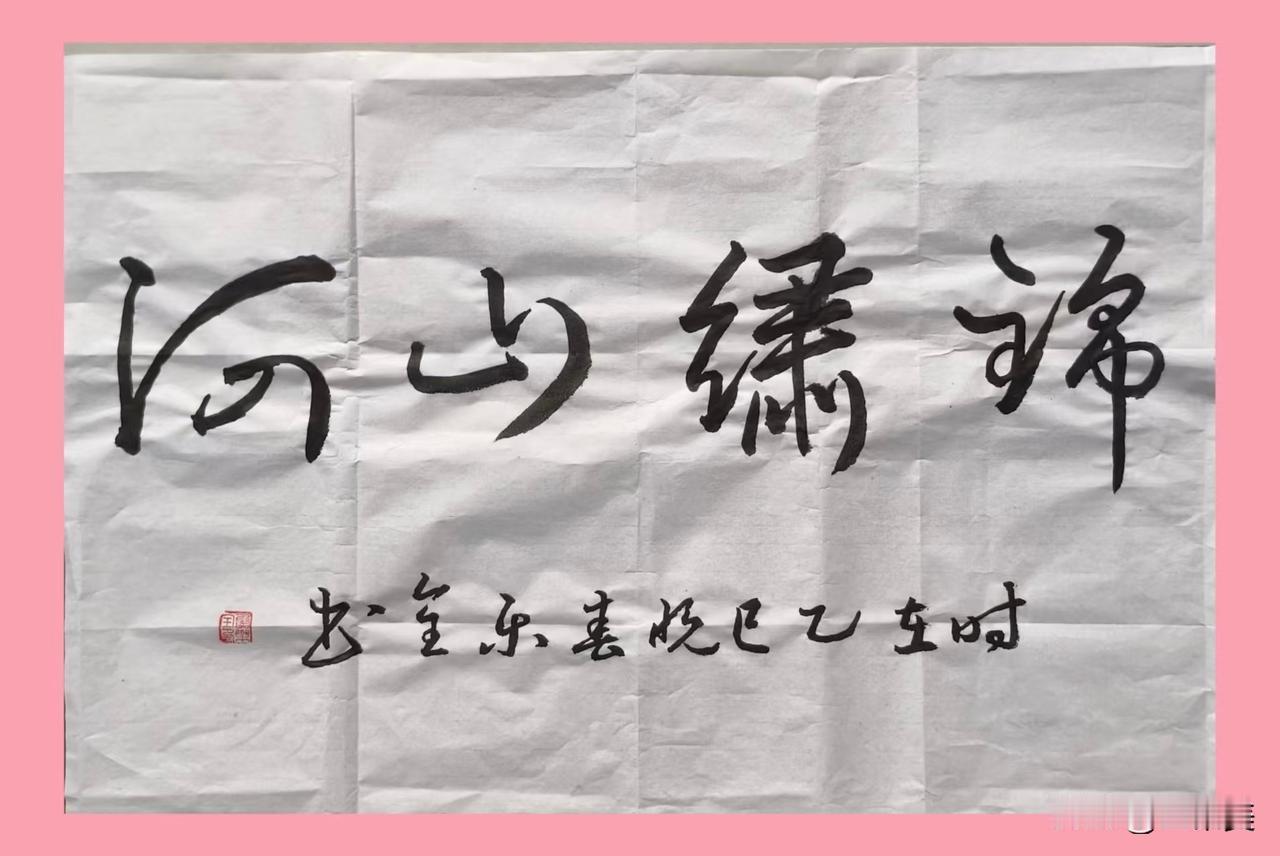 锦繡山河
时在乙巳晚春乐全书